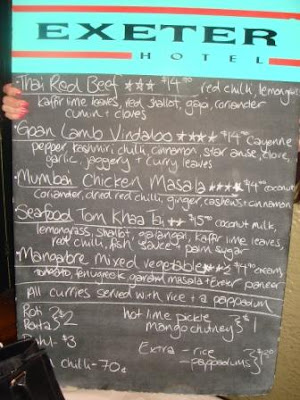 EXETER
HOTEL
• Thai Red Beef *** $14.90 red chilli, lemongrass
kaffir lime leaves, red shallot, gapi, coriander
cumin + cloves
• Goan Lamb Vindaloo **** $14.90 cayenne
pepper, kashmiri chilli, cinnamon, star anise, clove,
garlic, jaggery + curry leaves
• Mumbai Chicken Masala **** $14.90 coconut
coriander, dried red chilli, ginger, cashews + cinnamon
Seafood Tom Khaa Tai ** $15.90 coconut milk,
lemongrass, shallot, galangal, kaffir lime leaves,
red chilli, fish sauce + palm sugar
• Mangalore mixed vegetable $14.90 cream,
tomato, fenugreek, garam masala + paneer
All curries served with rice + a pappadum
Roti } $2 hot lime pickle } $1
Raita mango chutney
Dahl - $3
Extra - rice
chilli - 70c - pappadums } $1